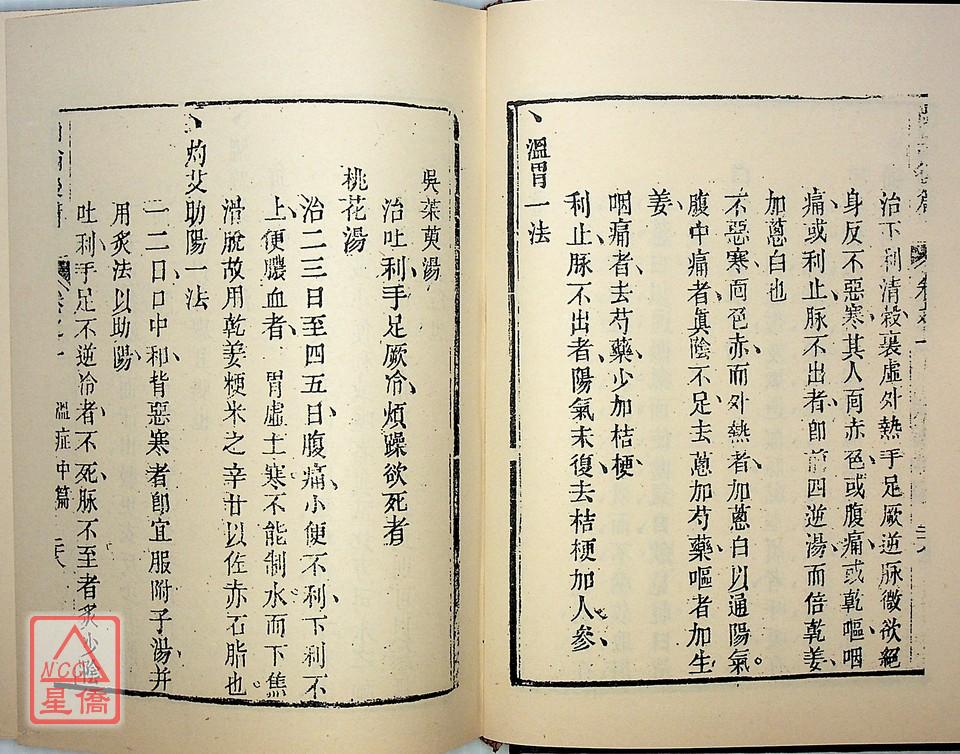 治下利清穀裏虛外熱手足厥逆脉微欲絕
身反不惡寒其人面赤色或腹痛或乾嘔咽
痛或利止脉不出者卽前四逆湯而倍乾姜
加蔥白也
不惡寒面色赤而外熱者加蔥白以通陽氣。
腹中痛者眞陰不足去蔥加芍藥嘔者加生
姜
咽痛者去芍藥少加桔梗
利止脉不出者陽氣未復去桔梗加人參
溫胃一法
吳茱萸湯
治吐利手足厥冷煩躁欲死者
桃花湯
治二三日至四五日腹痛小便不利下利不
止便膿血者胃虛土寒不能制水而下焦
滑脫故用乾姜粳米之辛甘以佐赤石脂也
灼艾助陽一法
一二日口中和背惡寒者卽宜服附子湯并
用炙法以助陽
吐利手足不逆冷者不死脉不至者炙少陰
卷之一 溫症中篇
NCC
星僑